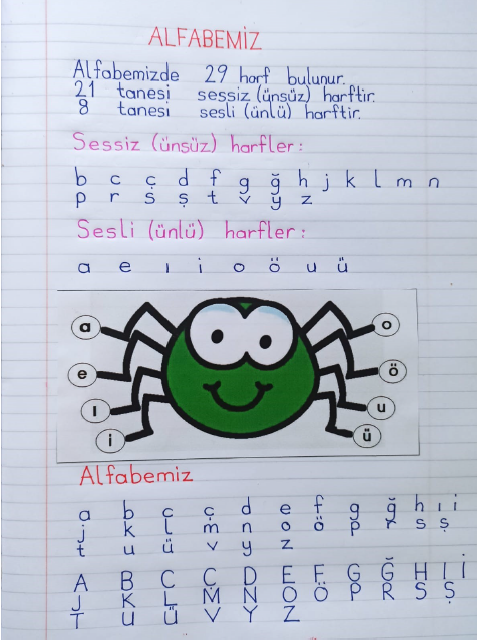 ALFABEMİZ
Alfabemizde 29 harf bulunur.
21 tanesi sessiz (ünsüz) harftir.
8 tanesi sesli (ünlü) harftir.
Sessiz (ünsüz) harfler:
b c ç d f g ğ h j k l m n
p r s ş t v y z
Sesli (ünlü) harfler:
a e ı i o ö u ü
a o
e ö
ı u
i ü
Alfabemiz
a b c ç d e f g ğ h ı i
j k l m n o ö p r s ş
t u ü v y z
A B C Ç D E F G Ğ H I İ
J K L M N O Ö P R S Ş
T U Ü V Y Z